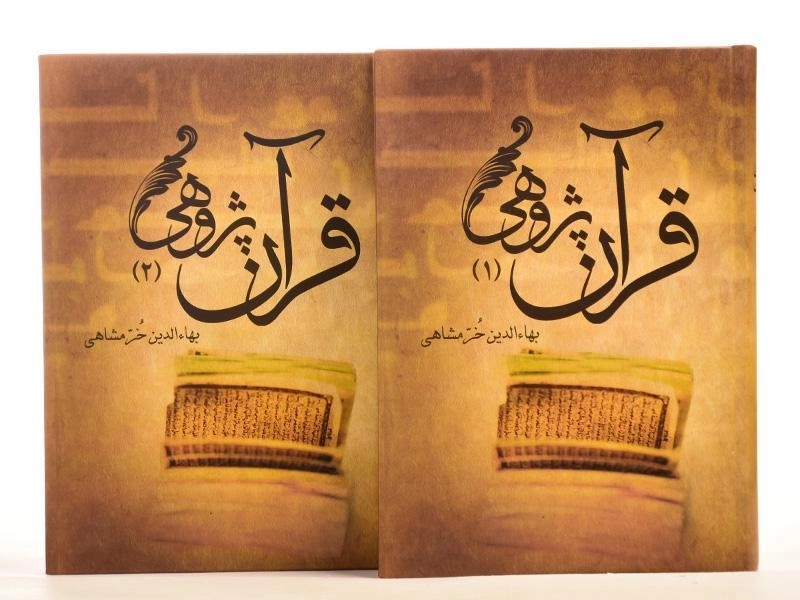 قرآن پژوهی
(۱)
بهاءالدین خُرّمشاهی
قرآن پژوهی
(۲)
بهاءالدین خُرّمشاهی